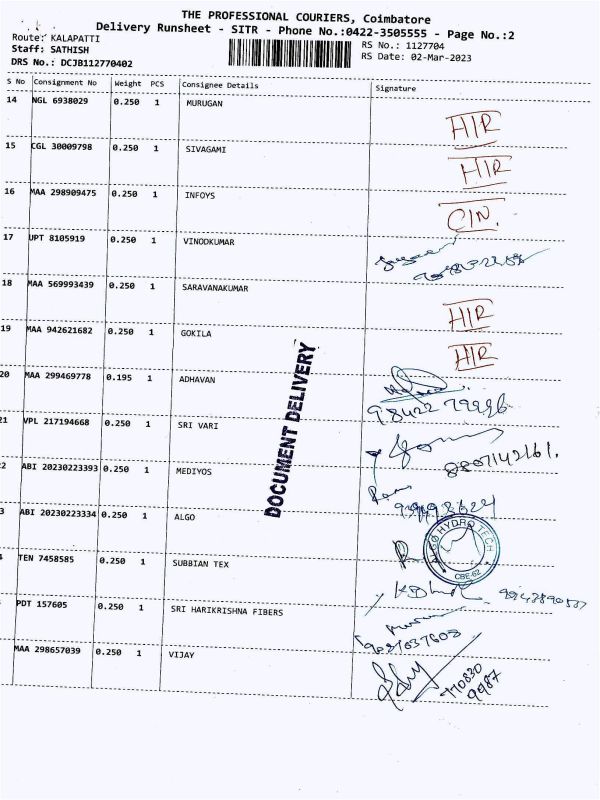 THE PROFESSIONAL COURIERS, Coimbatore
Delivery Runsheet - SITR - Phone No.:0422-3505555 - Page No.:2
Route: KALAPATTI
RS No.: 1127704
Staff: SATHISH
RS Date: 02-Mar-2023
DRS No.: DCJB112770402
S No Consignment No Weight PCS Consignee Details Signature
14 NGL 6938029 0.250 1 MURUGAN HIR
15 CGL 30009798 0.250 1 SIVAGAMI HIR
16 MAA 298909475 0.250 1 INFOYS CIN.
17 UPT 8105919 0.250 1 VINODKUMAR
18 MAA 569993439 0.250 1 SARAVANAKUMAR HIR
19 MAA 942621682 0.250 1 GOKILA HIR
20 MAA 299469778 0.195 1 ADHAVAN
21 VPL 217194668 0.250 1 SRI VARI 8807142161.
2 ABI 20230223393 0.250 1 MEDIYOS
3 ABI 20230223334 0.250 1 ALGO
ALGO HYDRO TECH
CBE-62
TEN 7458585 0.250 1 SUBBIAN TEX
PDT 157605 0.250 1 SRI HARIKRISHNA FIBERS
MAA 298657039 0.250 1 VIJAY 770830
9987
DOCUMENT DELIVERY